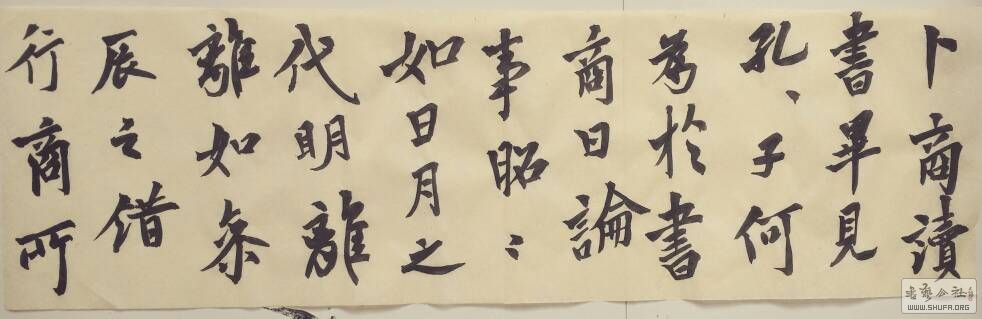 卜商讀
書畢見
孔、子何
為於書
商曰論
事昭〻
如日月之
代明離
離如參
辰之錯
行商所
书艺公社
WWW.SHUFA.ORG